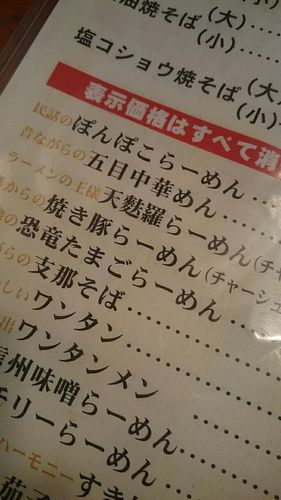 油焼そば(大)....
(小)....
塩コショウ焼そば(大)
(小)
表示価格はすべて消
民話のぽんぽこらーめん....
昔ながらの五目中華めん....
ラーメンの王様天麩羅らーめん(チャ
からの焼き豚らーめん(チャーシュ
の恐竜たまごらーめん
がらの支那そば........
しいワンタン........
出ワンタンメン........
信州味噌らーめん........
チリーらーめん........
ハーモニーすき
茄子